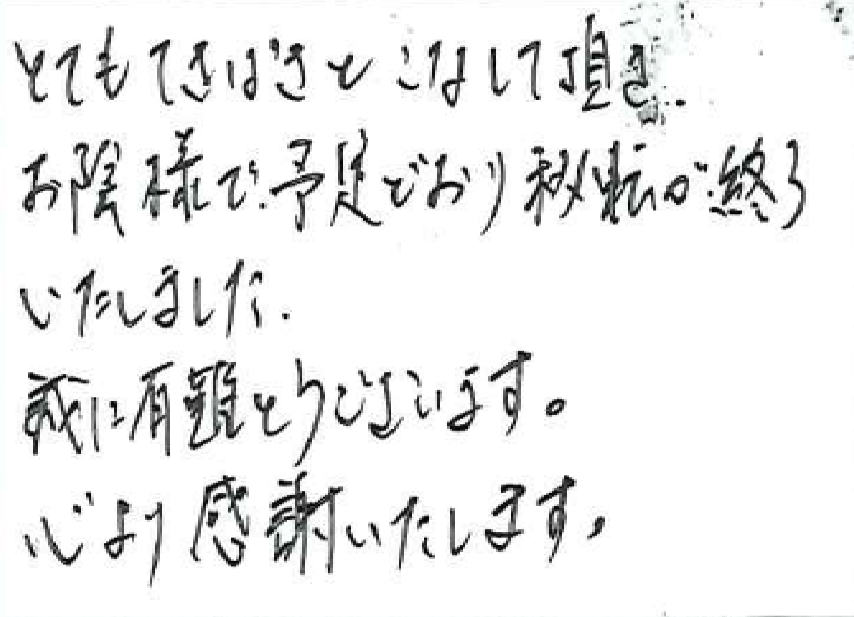 とてもてきぱきとこなして頂き、
お陰様で、予定どおり移転が終了
いたしました。
誠に有難とうございます。
心より感謝いたします。